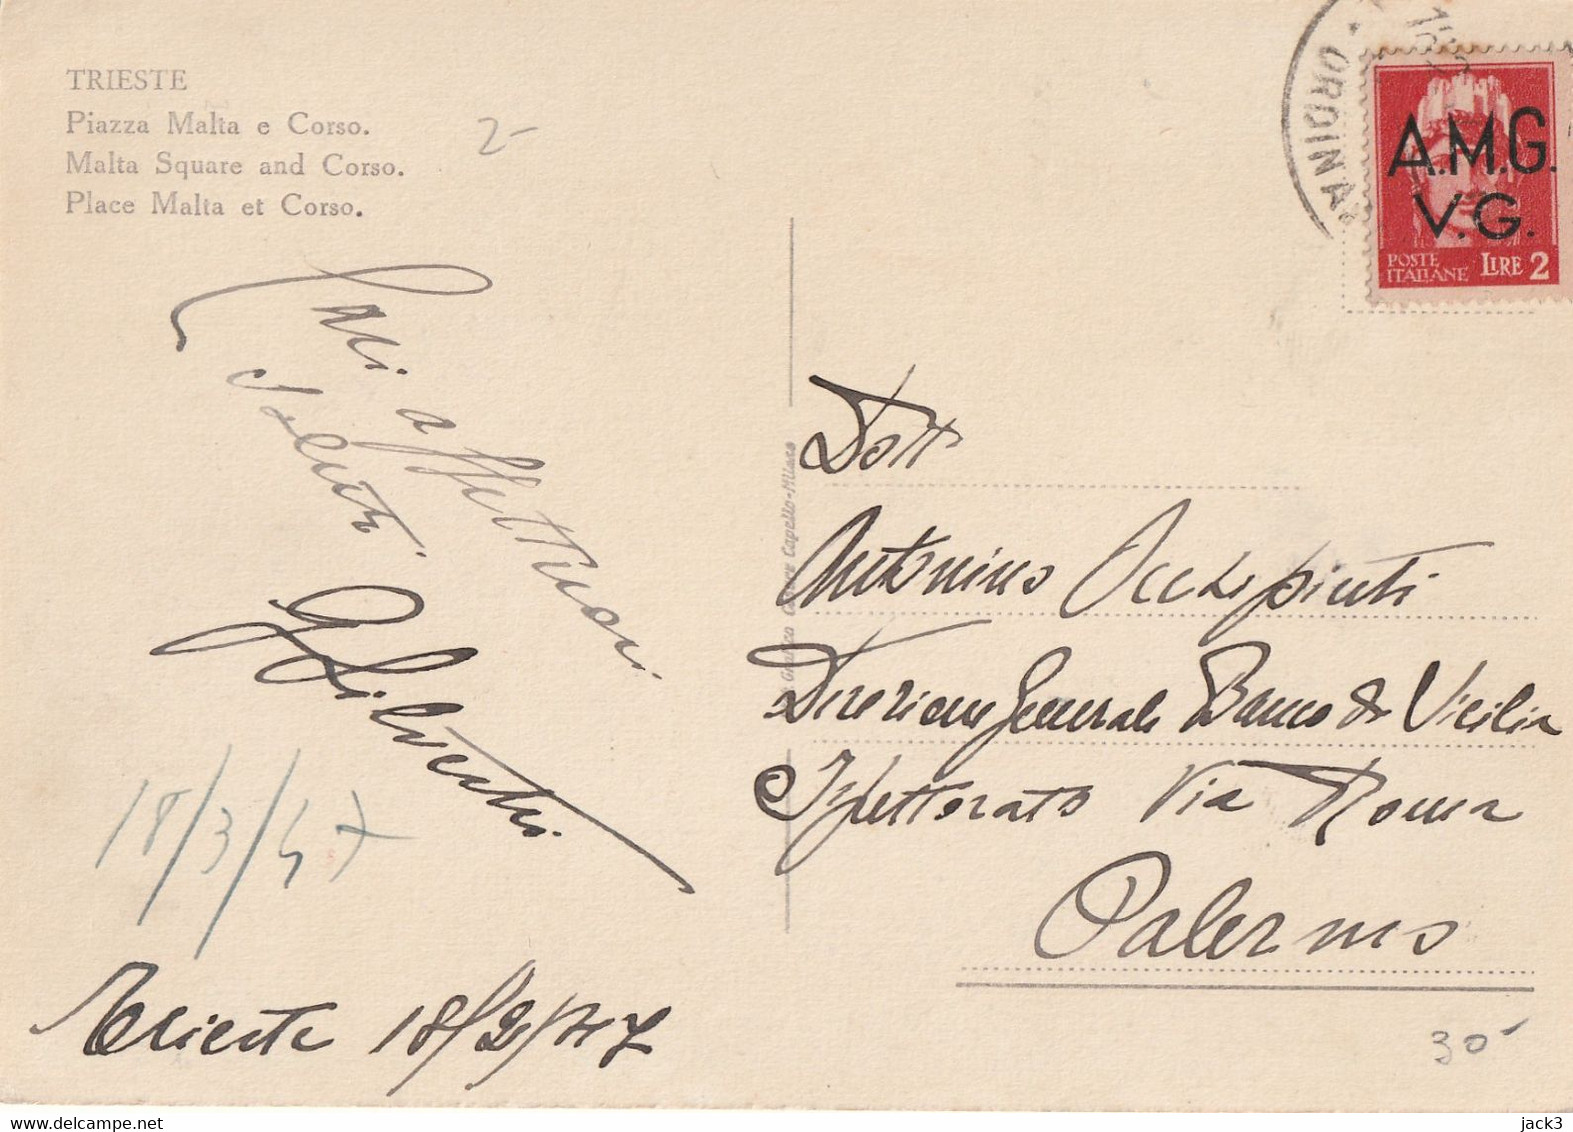 TRIESTE
Piazza Malta e Corso.
Malta Square and Corso.
Place Malta et Corso.
2-
Cari affettuosi
saluti
18/3/47
Trieste 18/2/47
ORDINA
A.M.G.
V.G.
POSTE
ITALIANE LIRE 2
Dott
Antonino Occhipinti
Direzione Generale Banco di Sicilia
Ispettorato Via Roma
Palermo
30
Cesare Capello-Milano
delcampe.net
jack3